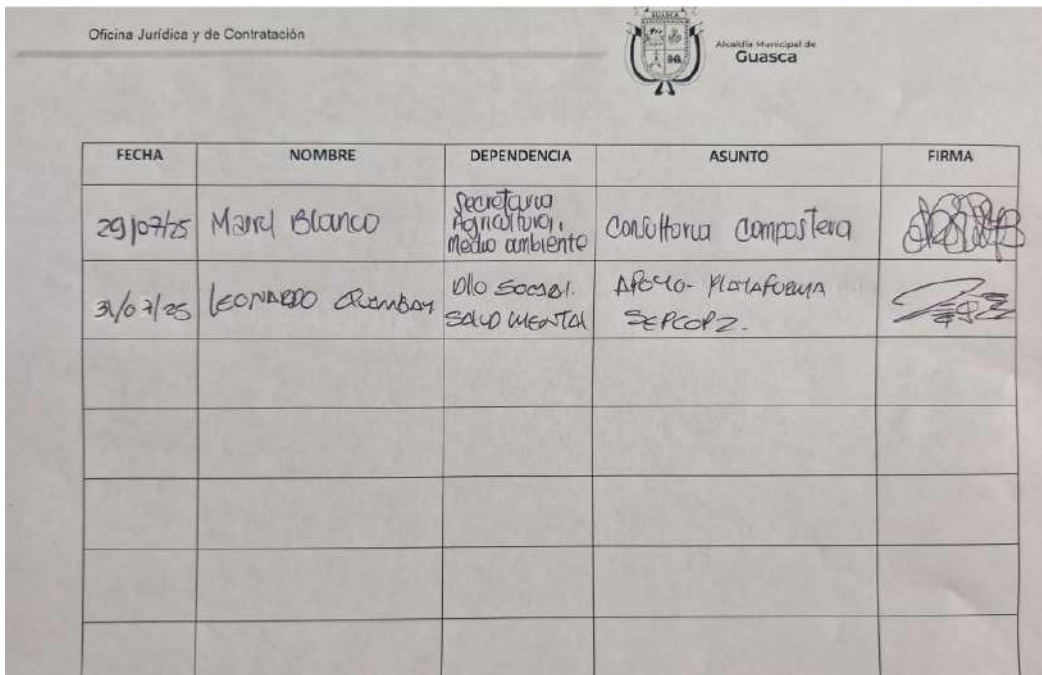 Oficina Jurídica y de Contratación
GUASCA
Alcaldía Municipal de
Guasca
FECHA NOMBRE DEPENDENCIA ASUNTO FIRMA
29/07/25 Blanco Secretaria Agricultura, Medio ambiente Consultoria Compostera
31/07/25 LEONARDO Dllo SOCIAL. SALUD MENTAL APOYO- PLATAFORMA